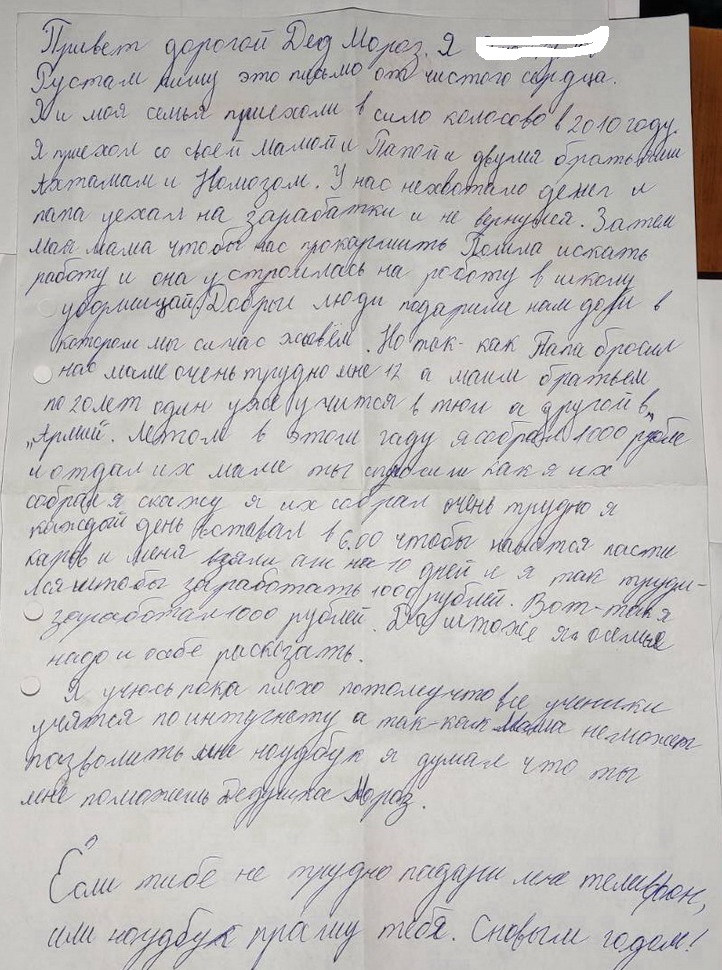 Привет дорогой Дед Мороз. Я
Рустам пишу это письмо от чистого сердца.
Я и моя семья приехоли в сило колосово в 2010 году.
Я приехол со своей мамой и Папой и двумя братьями
Ахтамам и Номозом. У нас нехвотало денег и
папа уехал на зарабатки и не вернулся. Затем
май мама чтобы нас прокармить Пошла искать
работу и она устроилась на роботу в школу
уборщицай. Добрыи люди подарили нам дом в
катором мы сичас живём. Но так-как Папа бросил
нас маме очень трудно мне 12 а маим братьем
по 20 лет один уже учится в тюи а другой в
"Армий. Летом в этом гаду я собрал 1000 рубле
и отдал их маме ты спросиш как я их
собрал я скажу я их собрал очень трудно я
каждый день вставал в 6.00 чтобы
каров и меня взяли аш на 10 дней и я так труди-
лся штобы заработать 1000 рублей. Вот-так я
заработал 1000 рублей. Да штоже я о семье
надо и о себе расказать.
Я учюсь пока плохо потомучто все ученики
учятся по интугнету а так-как Мама неможет
пазволить мне ноудбук я думал что ты
мне поможешь Дедушка Мороз.
Если тибе не трудно падари мне теливфон,
или ноудбук прашу тебя. Сновым годом!